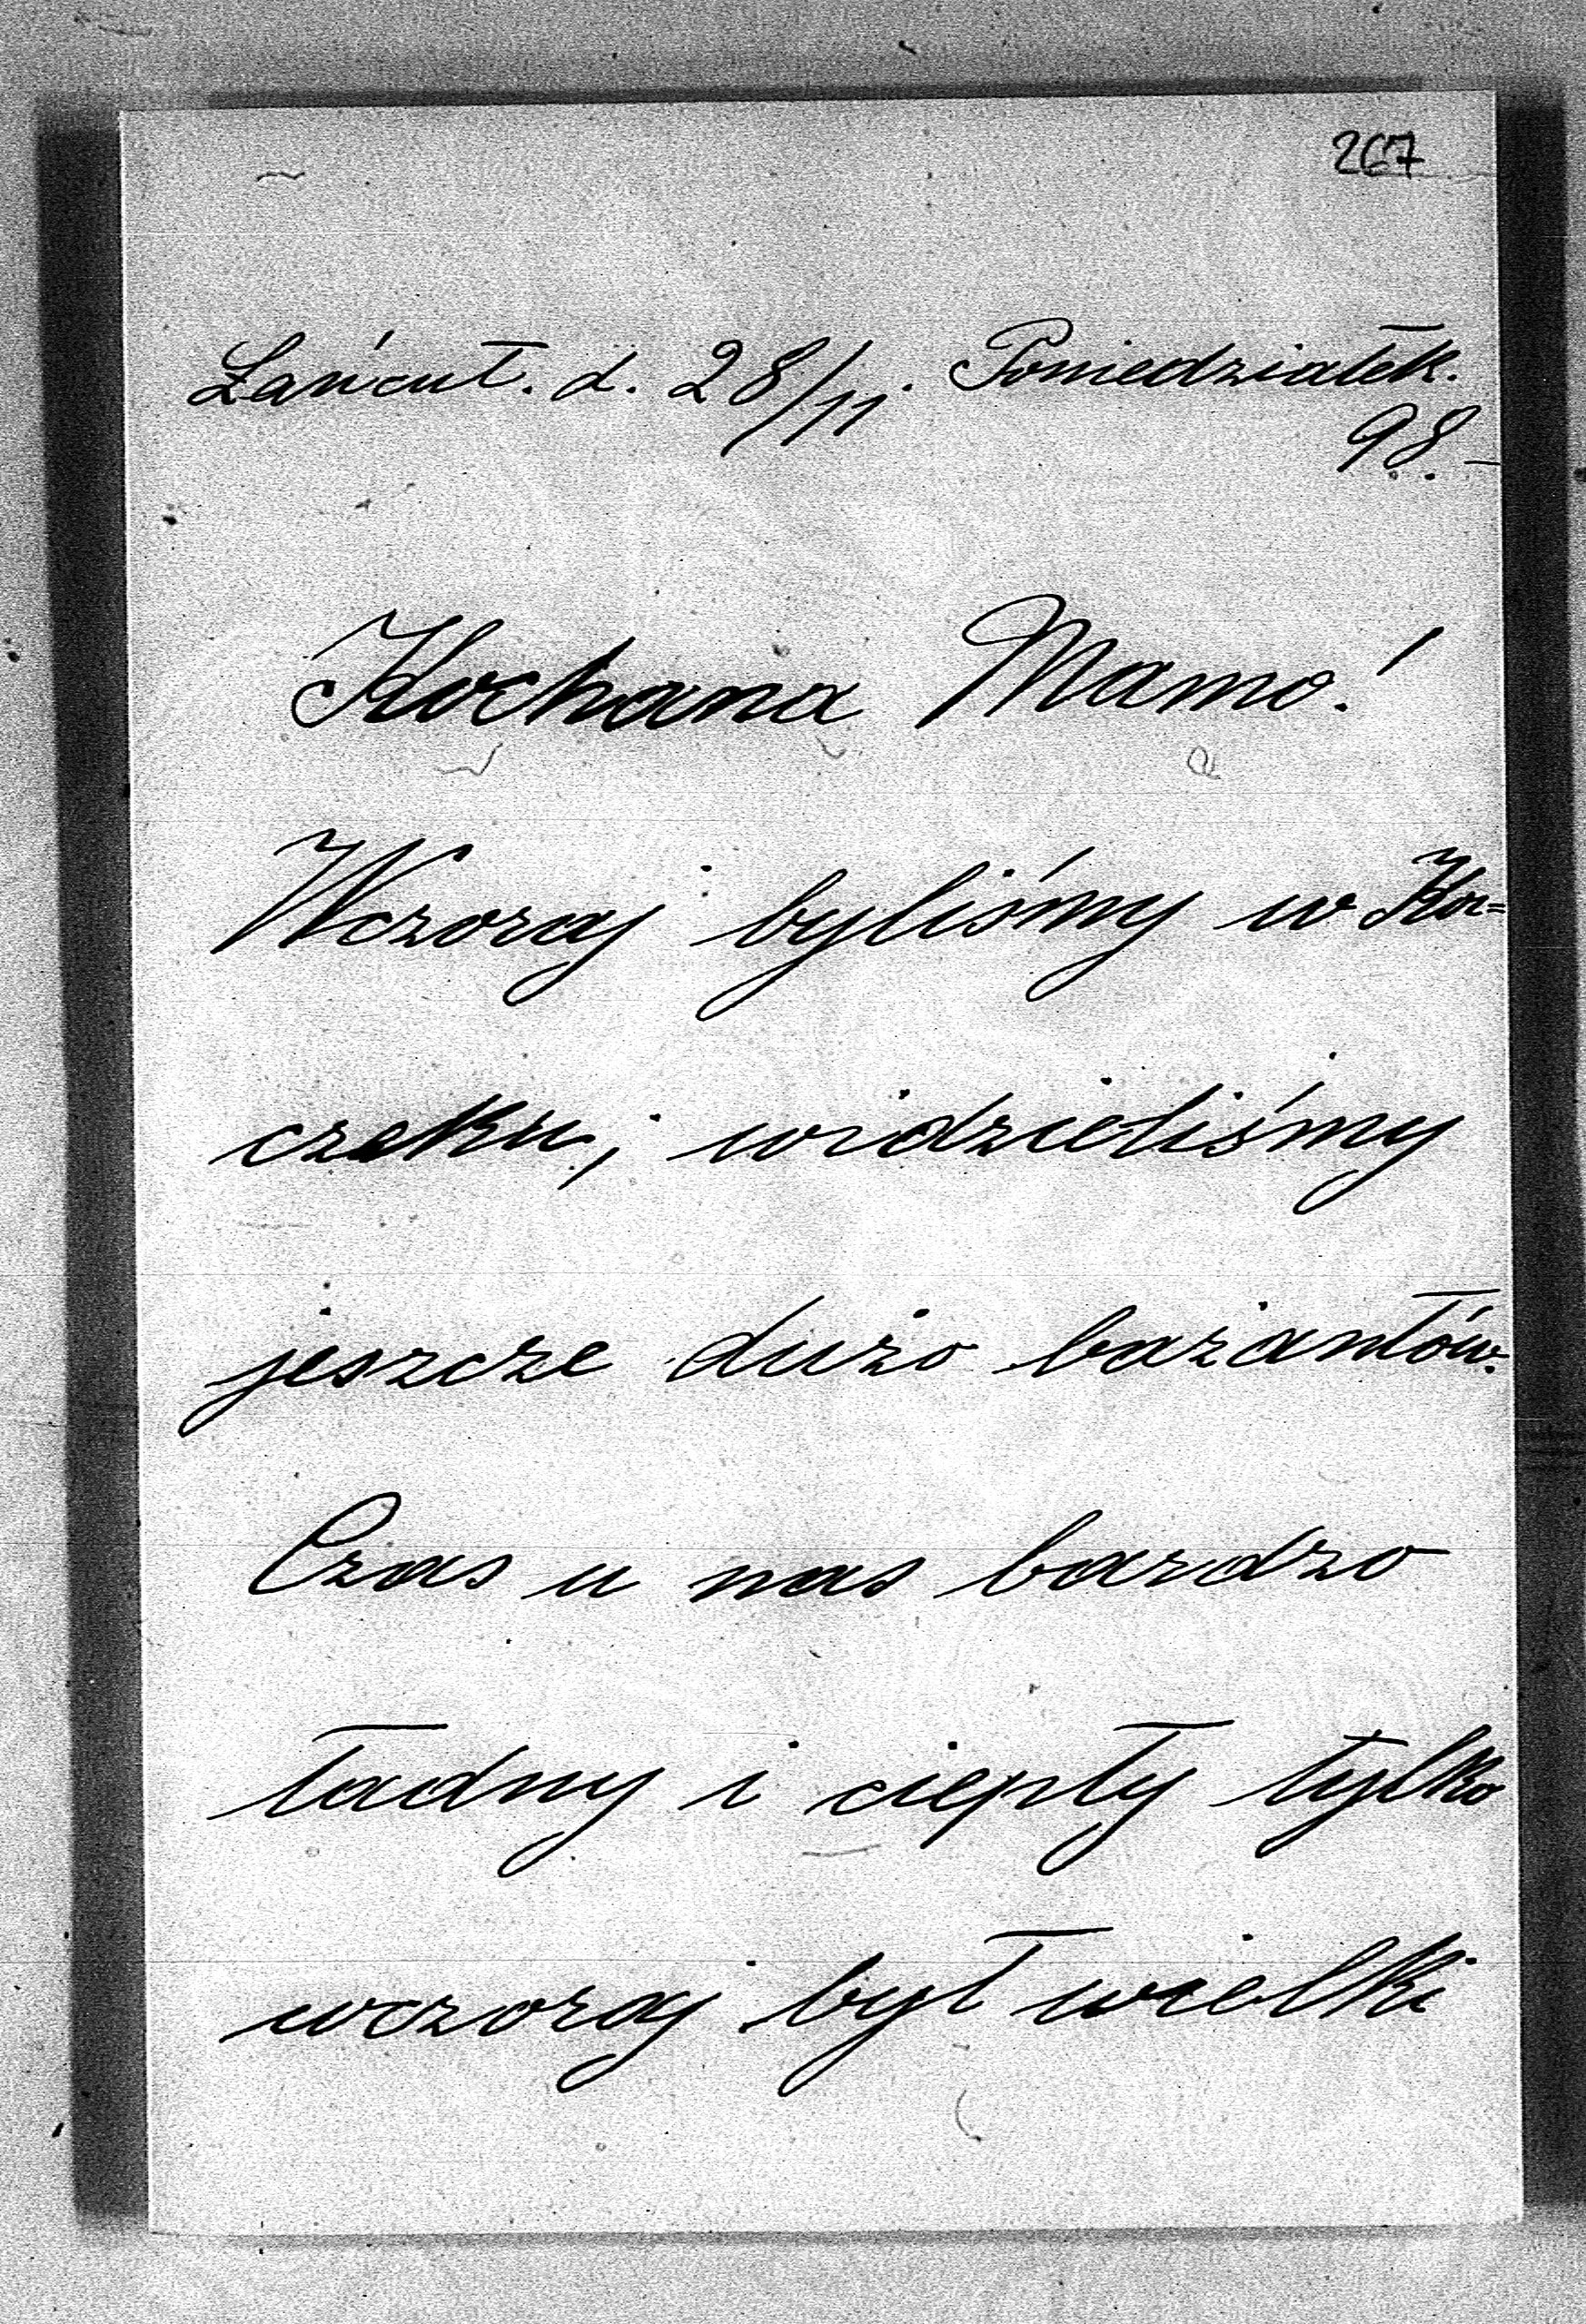 267
Łańcut. d. 28/11. Poniedziałek.
98.-
Kochana Mamo!
Wczoraj byliśmy w Kor=
czeku, i widzieliśmy
jeszcze dużo bażantów.
Czas u nas bardzo
ładny i ciepły tylko
wczoraj był wielki